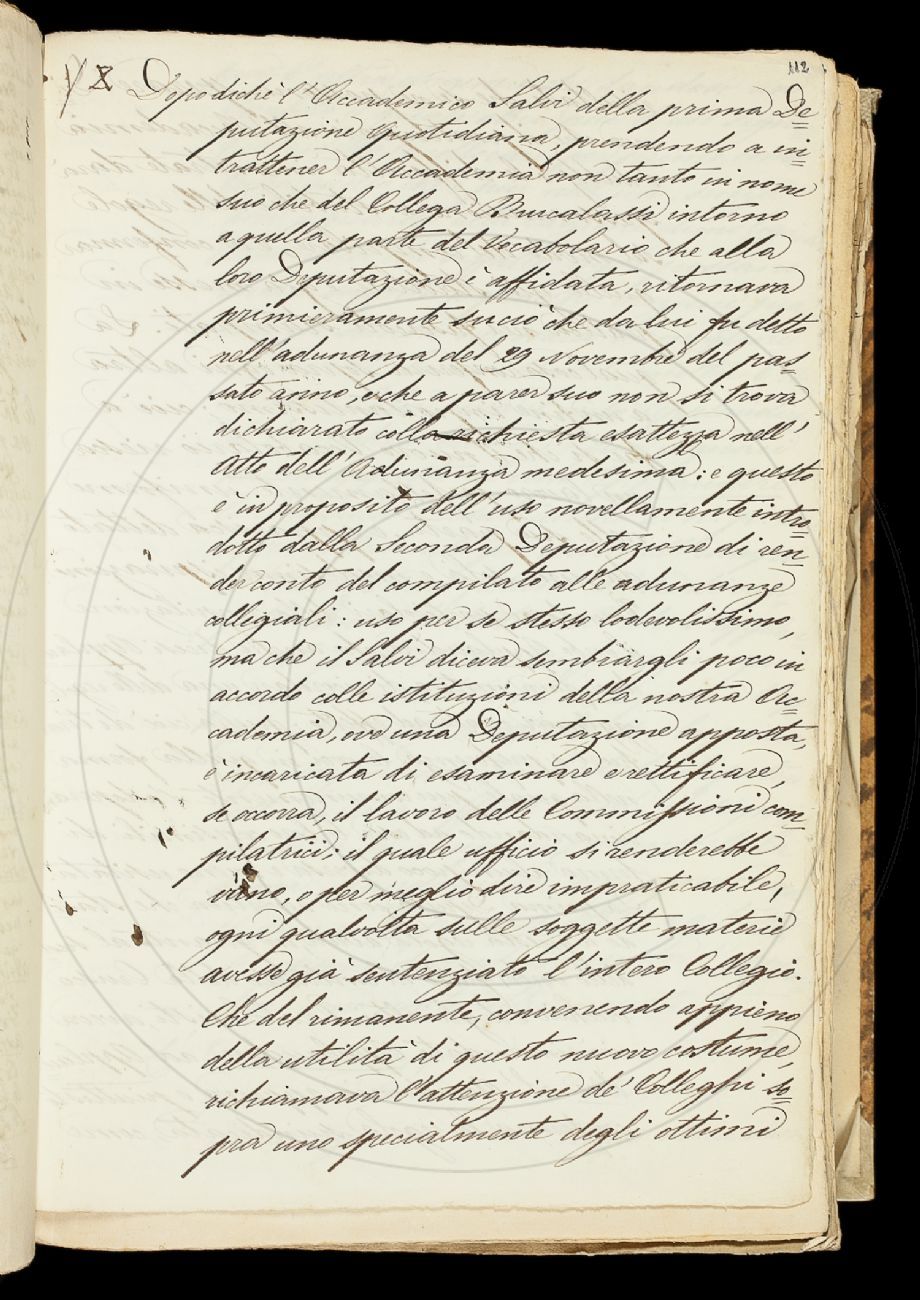 112
Dopodichè l'Accademico Salvi della prima De=
putazione quotidiana, prendendo a in=
trattener l'Accademia non tanto in nome
suo che del Collega Burcalassi intorno
a quella parte del Vocabolario che alla
loro Deputazione è affidata, ritornava
primieramente su ciò che da lui fu detto
nell'adunanza del 29 Novembre del pas=
sato anno, e che a parer suo non si trova
dichiarato colla richiesta esattezza nell'
Atto dell'Adunanza medesima: e questo
è in proposito dell'uso novellamente intro=
dotto dalla Seconda Deputazione di ren=
der conto del compilato alle adunanze
collegiali: uso per se stesso lodevolissimo,
ma che il Salvi diceva sembrargli poco in
accordo colle istituzioni della nostra Ac=
cademia, ove una Deputazione apposta,
è incaricata di esaminare e rettificare,
se occorra, il lavoro delle Commissioni com=
pilatrici; il quale ufficio si renderebbe
vano, o per meglio dire impraticabile,
ogni qualvolta sulle soggette materie
avesse già sentenziato l'intero Collegio.
Che del rimanente, convenendo appieno
della utilità di questo nuovo costume,
richiamava l'attenzione de' Colleghi so=
pra uno specialmente degli ottimi